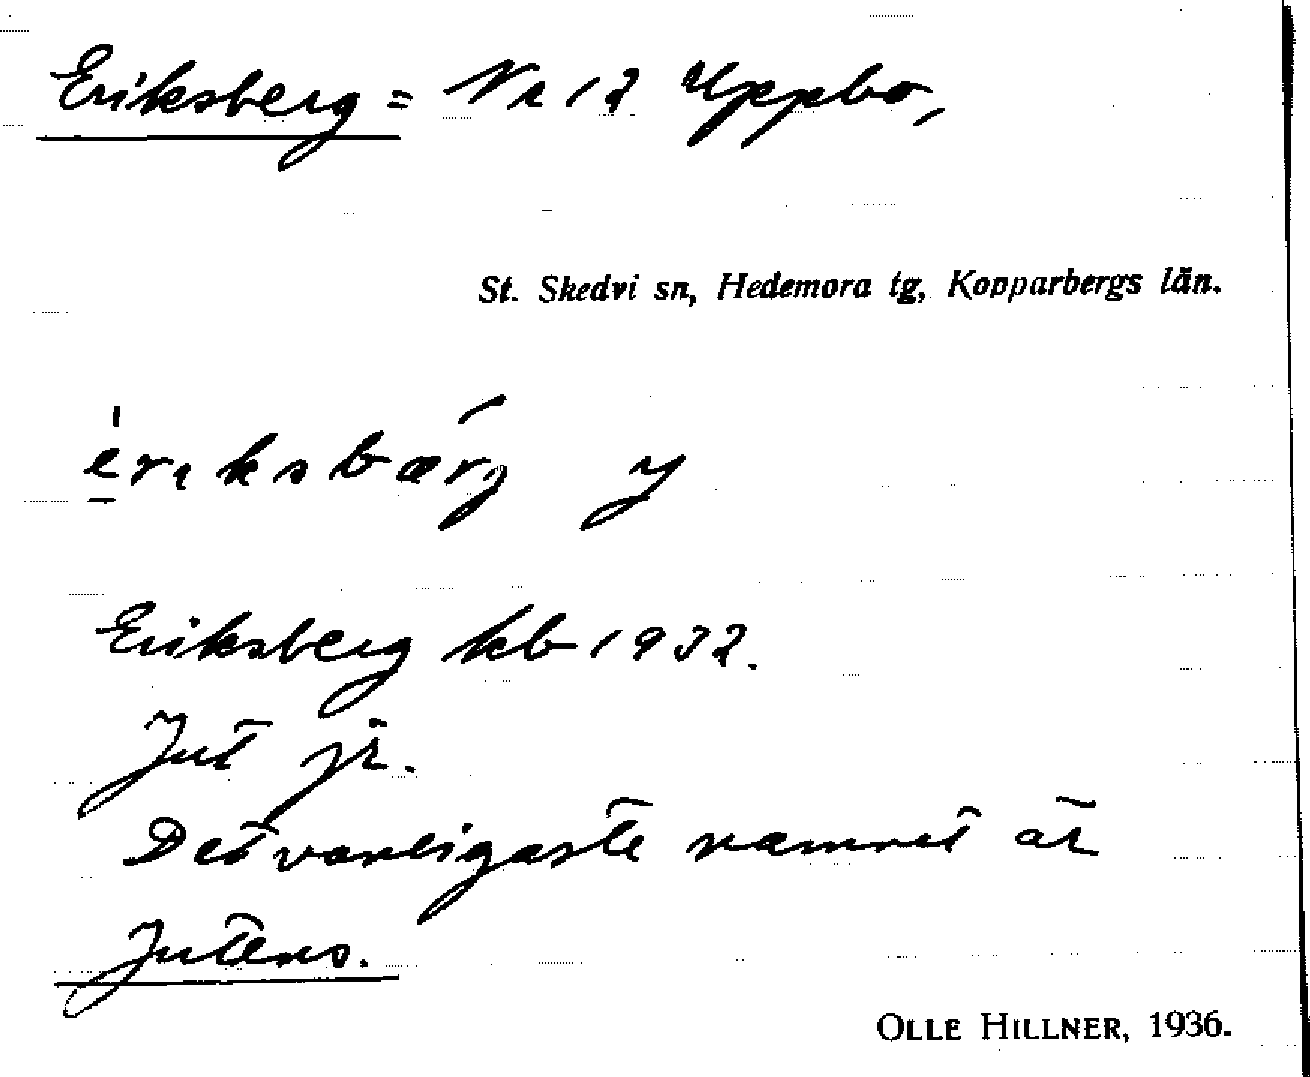 Eriksberg = Nr 12 Uppbo,
St. Skedvi sn, Hedemora tg, Kopparbergs län.
eriksbærg y
Eriksberg kb 1932.
Jut jr.
Det vanligaste namnet är
Jutens.
OLLE HILLNER, 1936.